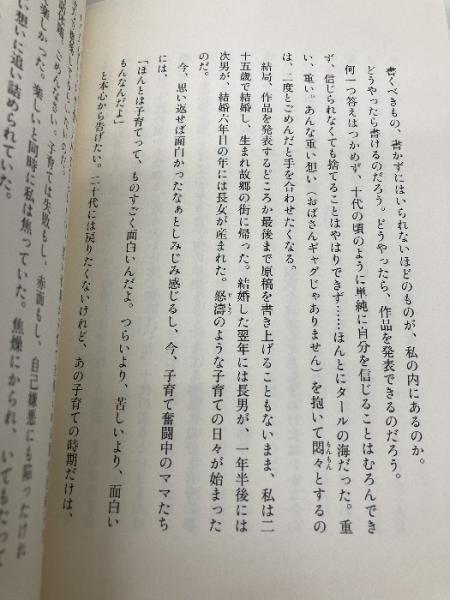 書くべきもの、書かずにはいられないほどのものが、私の内にあるのか。
どうやったら書けるのだろう。どうやったら、作品を発表できるのだろう。
何一つ答えはつかめず、十代の頃のように単純に自分を信じることはむろんでき
ず、信じられなくても捨てることはやはりできず……ほんとにタールの海だった。重
い、重い。あんな重い想い（おばさんギャグじゃありません）を抱いて悶々とするの
は、二度とごめんだと手を合わせたくなる。
結局、作品を発表するどころか最後まで原稿を書き上げることもないまま、私は二
十五歳で結婚し、生まれ故郷の街に帰った。結婚した翌年には長男が、一年半後には
次男が、結婚六年目の年には長女が産まれた。怒濤のような子育ての日々が始まった
のだ。
今、思い返せば面白かったなぁとしみじみ感じるし、今、子育て奮闘中のママたち
には、
「ほんとは子育てって、ものすごく面白いんだよ。つらいより、苦しいより、面白い
もんなんだよ」
と本心から告げたい。二十代には戻りたくないけれど、あの子育ての時期だけは、
子育ては失敗もし、赤面もし、自己嫌悪にも陥ったけれ
楽しかった。楽しいと同時に私は焦っていた。焦燥にかられ、いてもたって
い想いに追い詰められていた。